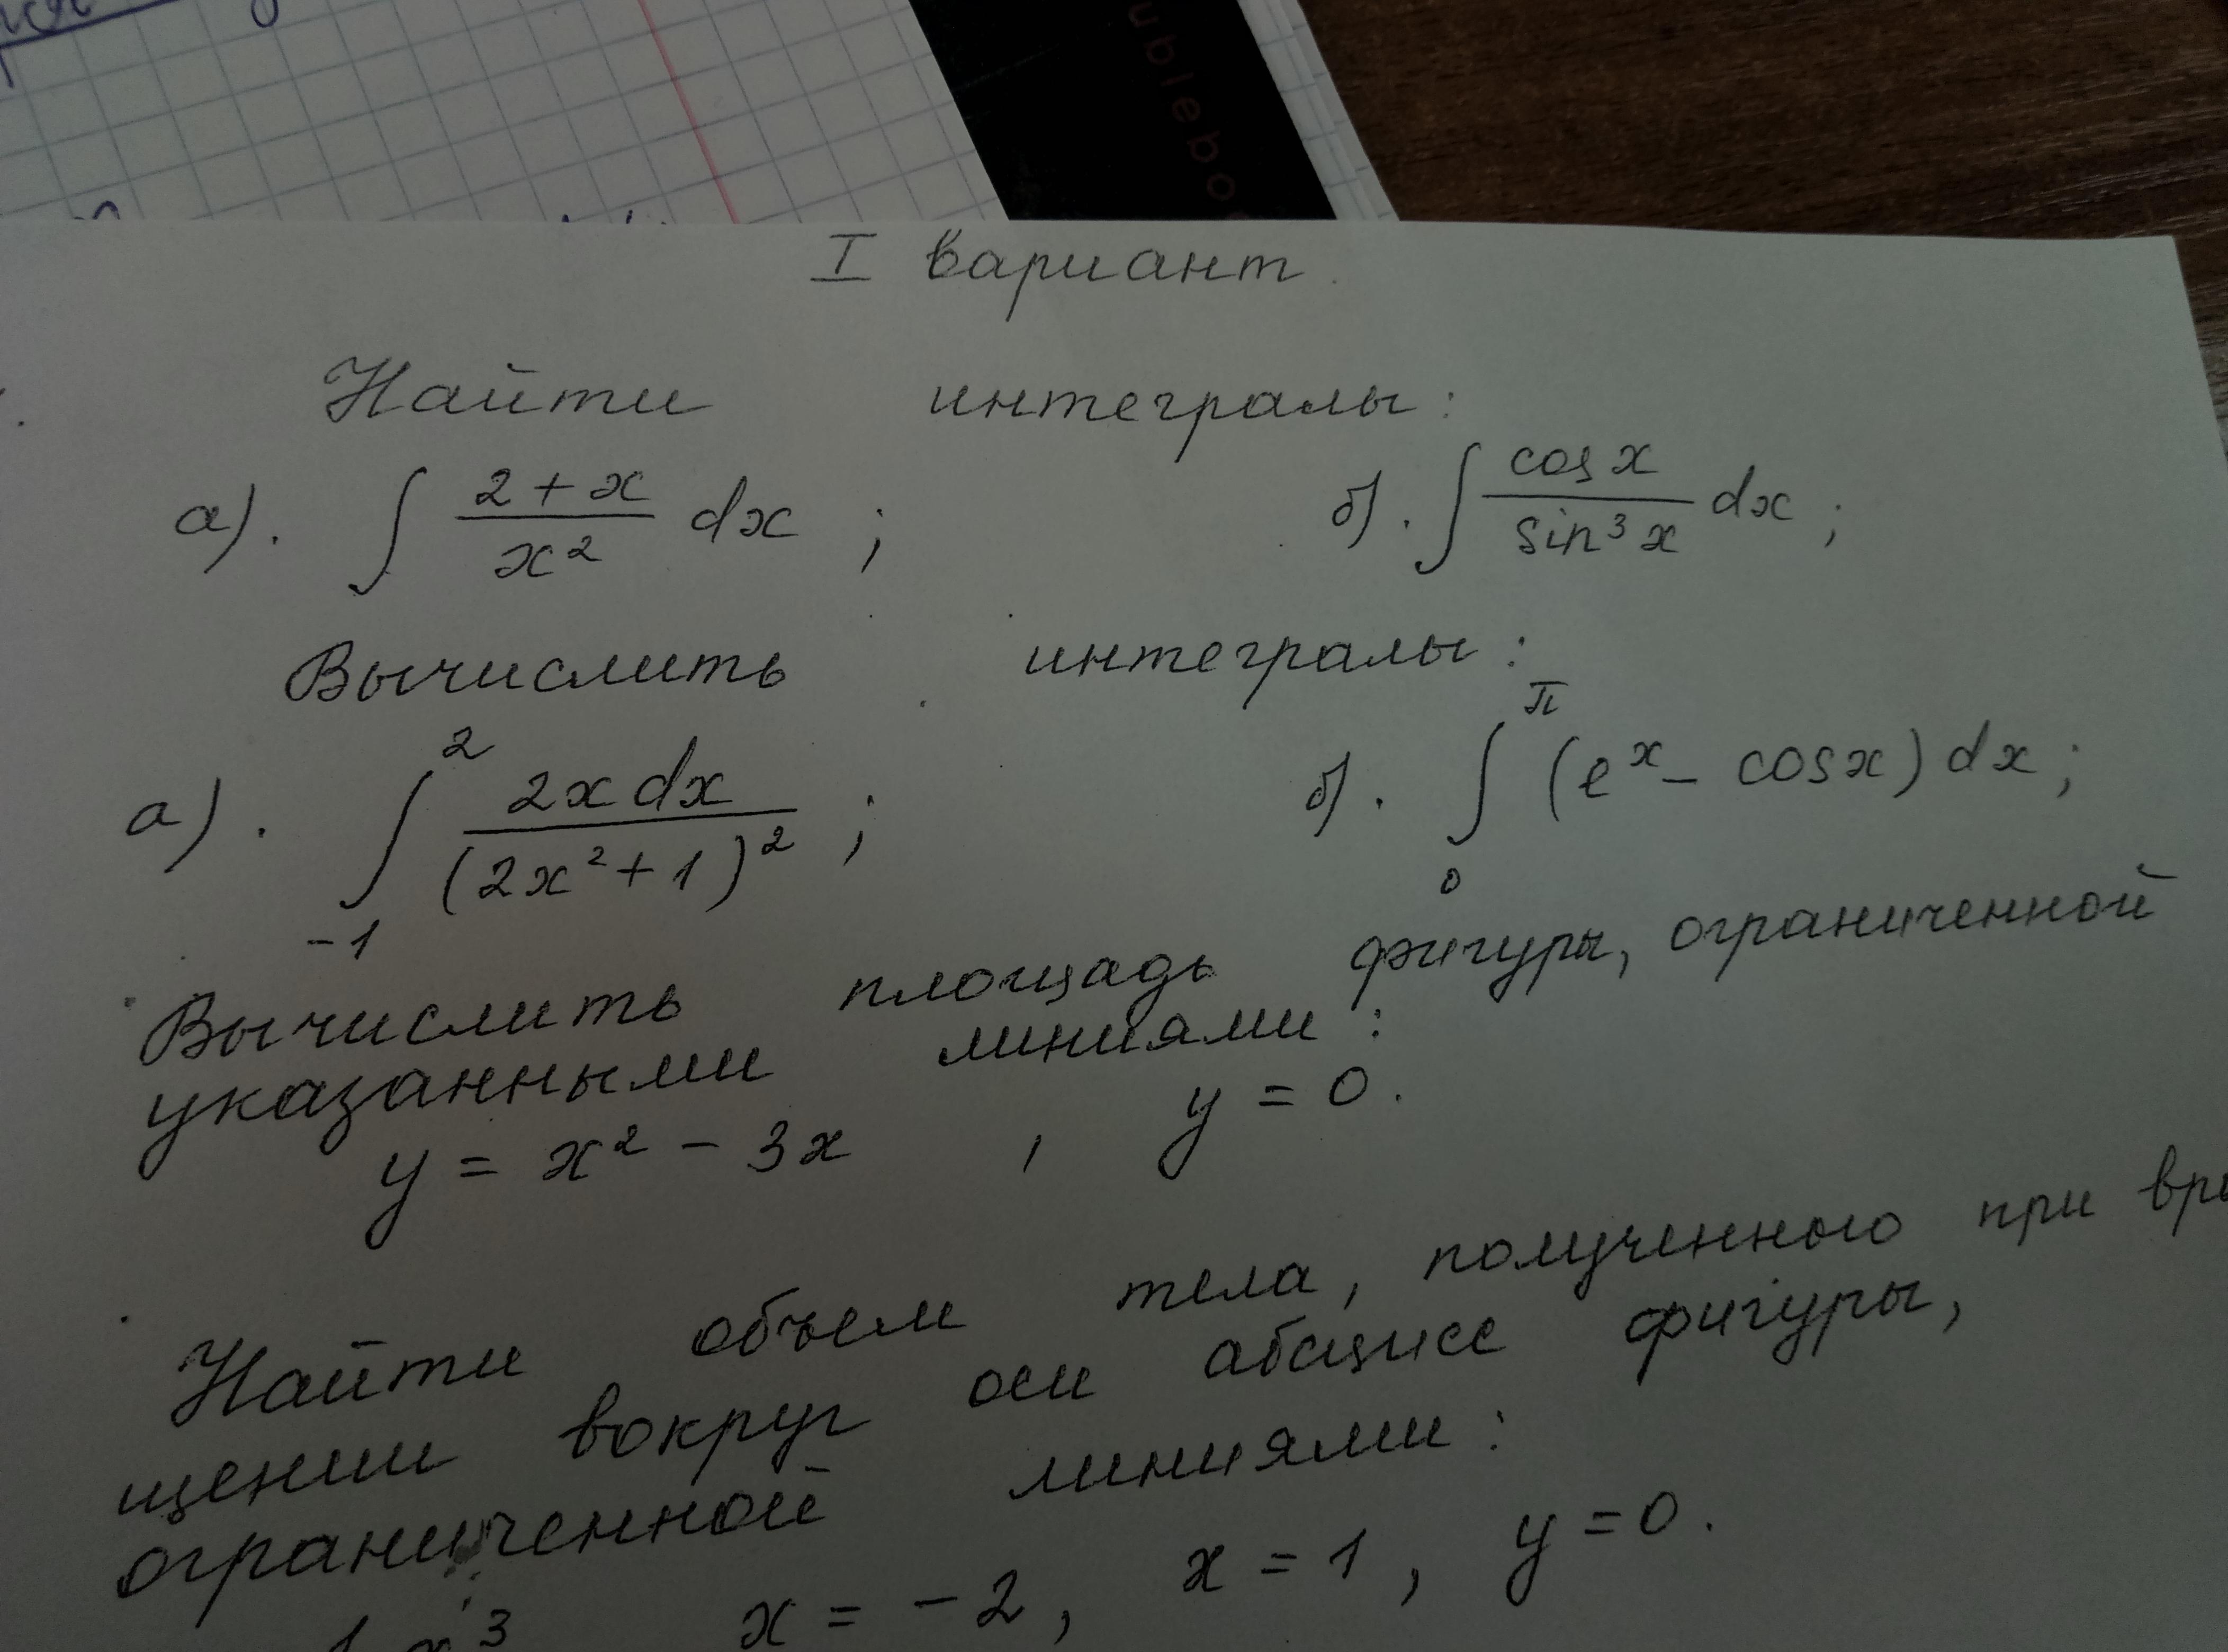 I вариант.
Найти интегралы:
а). ∫ (2 + x)/x² dx ; б). ∫ cos x/sin³ x dx ;
Вычислить интегралы:
а). ∫₋₁² 2x dx/(2x² + 1)² ; б). ∫₀^π (eˣ - cos x) dx ;
Вычислить площадь фигуры, ограниченной
указанными линиями:
y = x² - 3x , y = 0.
Найти объем тела, полученного при вра
щении вокруг оси абсцисс фигуры,
ограниченной линиями:
x³ x = -2, x = 1, y = 0.